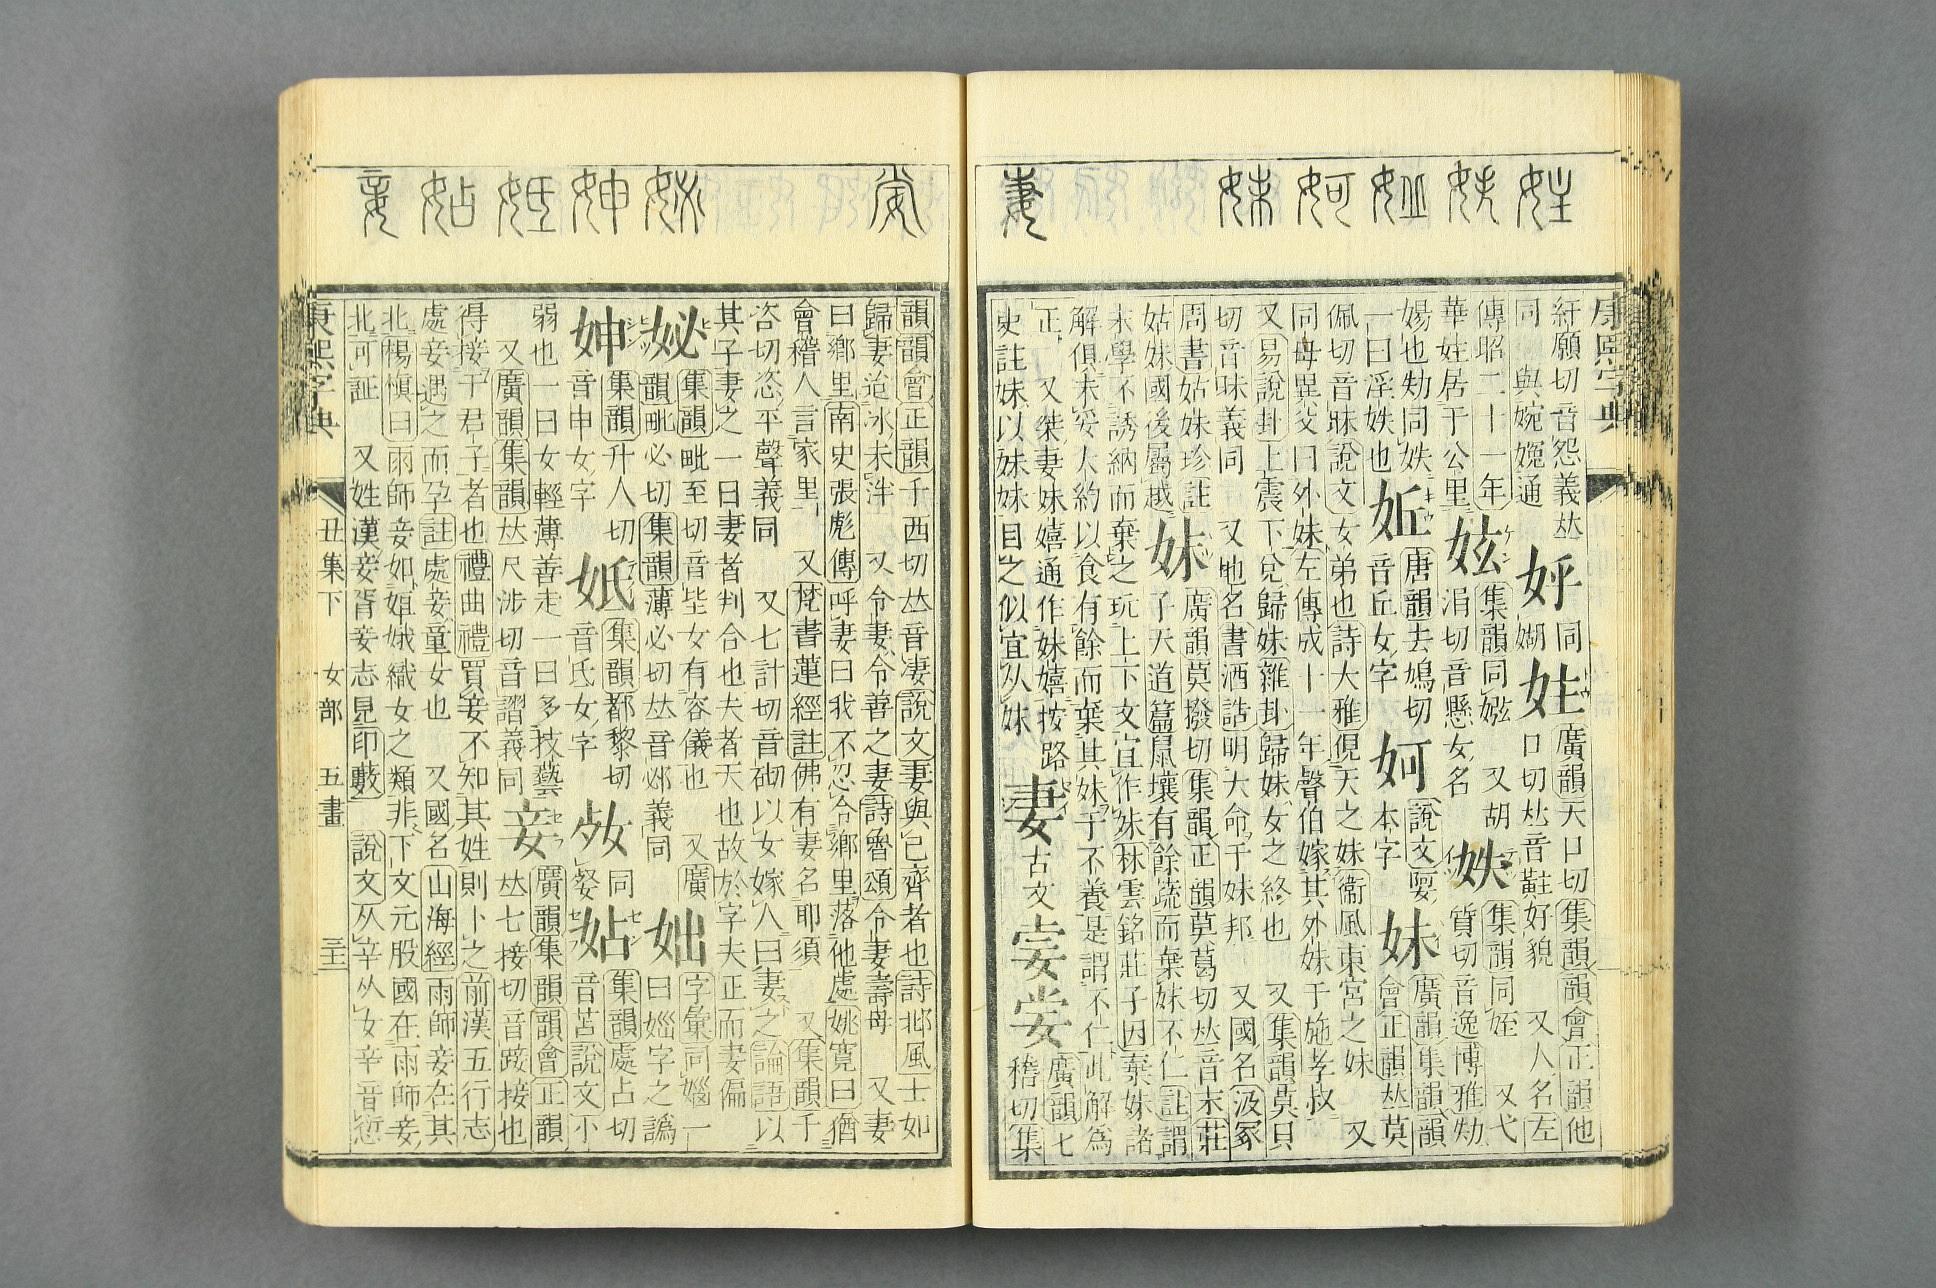 康熙字典
紆願切音怨義𠀤 㚥 同 妵 廣韻天口切集韻韻會正韻他
同與婉㛹通 口切𠀤音黈好貌 又人名左
傳昭二十一年 妶 集韻同 又胡 妷 集韻同姪 又弋
華妵居于公里 涓切音懸女名 質切音逸博雅
婸也 同妷 㚱 唐韻去鳩切 妸 說文 妹 廣韻集韻韻
一曰浮妷也 音丘女字 本字 會正韻𠀤莫
佩切音昧說文女弟也詩大雅俔天之妹衞風東宮之妹 又
同母異父曰外妹左傳成十一年聲伯嫁其外妹于施孝叔
又易說卦上震下兌歸妹雜卦歸妹女之終也 又集韻莫貝
切音昧義同 又地名書酒誥明大命于妹邦 又國名汲冢
周書姑妹珍註 妺 廣韻莫撥切集韻正韻莫葛切𠀤音末莊
姑妹國後屬越 子天道篇鼠壤有餘蔬而棄妺不仁註謂
末學不誘納而棄之玩上下文宜作妹林雲銘莊子因棄妹諸
解俱未妥大約以食有餘而棄其妹于不養是謂不仁此解爲
正 又桀妻妺嬉通作妹嬉按路 妻 古文 𡜈 𡜧 廣韻七
史註妺以妹妹目之似宜从妹 稽切集
韻韻會正韻千西切𠀤音凄說文妻與己齊者也詩邶風士如
歸妻迨冰未泮 又令妻令善之妻詩魯頌令妻壽母 又妻
曰鄉里南史張彪傳呼妻曰我不忍令鄉里落他處姚寬曰猶
會稽人言家里 又梵書蓮經註佛有妻名耶須 又集韻千
咨切恣平聲義同 又七計切音砌以女嫁人曰妻之論語以
其子妻之一曰妻者判合也夫者天也故於字夫正而妻偏
妼 集韻毗至切音坒女有容儀也 又廣 㚫 字彙同㛴一
韻毗必切集韻薄必切𠀤音邲義同 曰字之譌
妽 集韻升人切 妋 集韻都黎切 㚢 同 姑 集韻處占切
音申女字 音氐女字 㛐 音苫說文小
弱也一曰女輕薄善走一曰多技藝 妾 廣韻集韻韻會正韻
又廣韻集韻𠀤尺涉切音謵義同 𠀤七接切音踥接也
得接于君子者也禮曲禮買妾不知其姓則卜之前漢五行志
處妾遇之而孕註處妾童女也 又國名山海經雨師妾在其
北楊愼曰雨師妾如姮娥織女之類非下文元股國在雨師妾
北可證 又姓漢妾胥妾志見印藪 說文从䇂从女䇂音愆
康熙字典 丑集下 女部 五畫